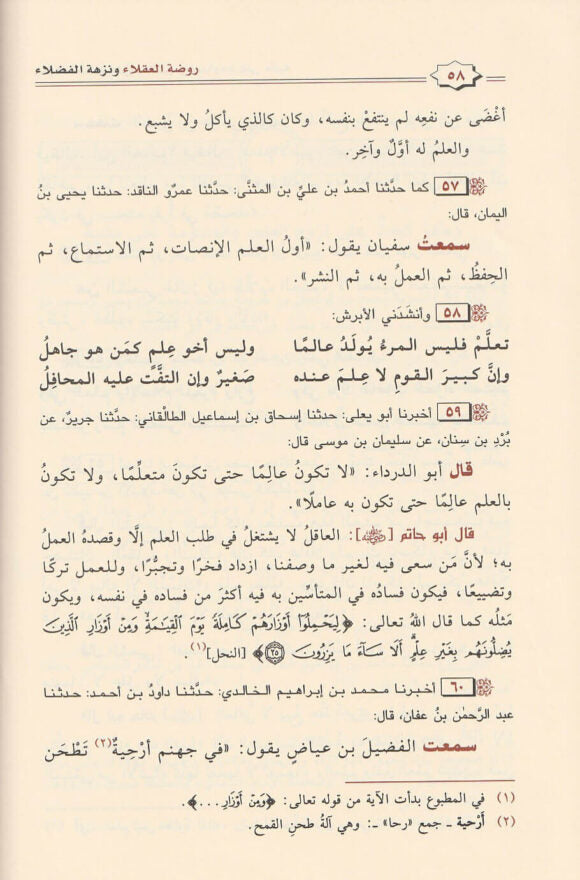 ٥٨ روضة العقلاء ونزهة الفضلاء
أغْضَى عن نفعِه لم ينتفعْ بنفسه، وكان كالذي يأكلُ ولا يشبع.
والعلمُ له أوَّلٌ وآخِر.
٥٧ كما حدَّثنا أحمدُ بن عليِّ بن المثنَّى: حدَّثنا عمرٌو الناقد: حدثنا يحيى بنُ
اليمان، قال:
سمعتُ سفيان يقول: «أولُ العلم الإنصات، ثم الاستماع، ثم
الحِفظُ، ثم العملُ به، ثم النشر».
٥٨ وأنشَدَني الأبرش:
تعلَّمْ فليس المرءُ يُولَدُ عالمًا وليس أخو عِلمٍ كمَن هو جاهلُ
وإنَّ كبيرَ القومِ لا عِلمَ عنده صغيرٌ وإن التفَّت عليه المحافِلُ
٥٩ أخبرنا أبو يعلى: حدثنا إسحاق بن إسماعيل الطالْقاني: حدَّثنا جريرٌ، عن
بُرْدِ بن سِنان، عن سليمان بن موسى قال:
قال أبو الدرداء: «لا تكونُ عالِمًا حتى تكونَ متعلِّمًا، ولا تكونُ
بالعلم عالِمًا حتى تكون به عاملًا».
قال أبو حاتم [رضي الله عنه]: العاقلُ لا يشتغلُ في طلب العلم إلَّا وقصدهُ العملُ
به؛ لأنَّ مَن سعى فيه لغير ما وصفنا، ازداد فخرًا وتجبُّرًا، وللعمل تركًا
وتضييعًا، فيكون فسادُه في المتأسِّين به فيه أكثرَ من فساده في نفسه، ويكون
مَثلُه كما قال اللهُ تعالى: ﴿لِيَحْمِلُوٓا۟ أَوْزَارَهُمْ كَامِلَةً يَوْمَ ٱلْقِيَٰمَةِ ۙ وَمِنْ أَوْزَارِ ٱلَّذِينَ
يُضِلُّونَهُم بِغَيْرِ عِلْمٍ ۗ أَلَا سَآءَ مَا يَزِرُونَ ٢٥﴾ [النحل](١).
٦٠ أخبرنا محمد بن إبراهيم الخالدي: حدَّثنا داودُ بن أحمد: حدثنا
عبد الرَّحمٰن بنُ عفان، قال:
سمعت الفضيلَ بن عياضٍ يقول: «في جهنم أرْحِيةٌ(٢) تَطْحَن
(١) في المطبوع بدأت الآية من قوله تعالى: ﴿وَمِنْ أَوْزَارِ ...﴾.
(٢) أَرْحية ـ جمع «رحا» ـ: وهي آلةُ طحنِ القمح.